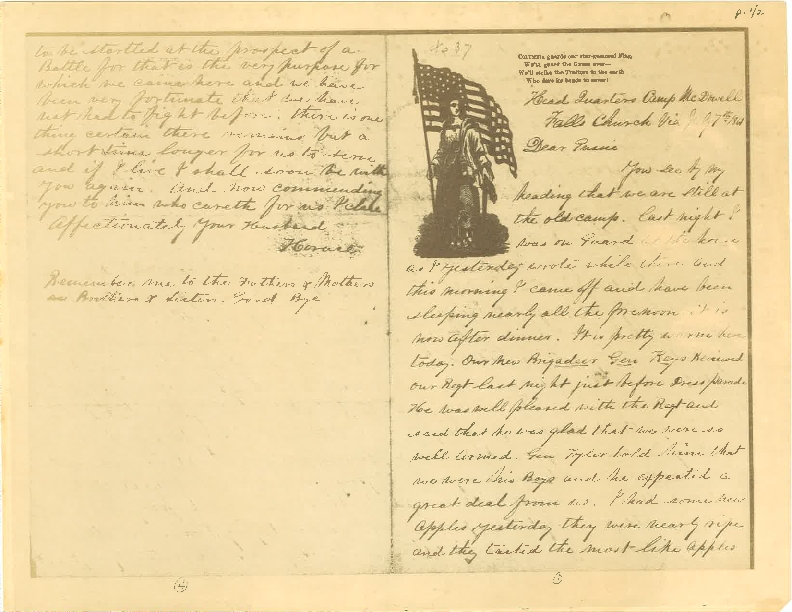 p. 1/2.
to be startled at the prospect of a
Battle for that is the very purpose for
which we came here and we have
been very fortunate that we have
not had to fight before. there is one
thing certain there remains but a
short time longer for us to serve
and if I live I shall soon be with
you again. And now commending
you to him who careth for us I close
Affectionately Your Husband
Horace
Remember me to the Fathers & Mothers
Brothers & Sisters. Good Bye
4
No 37
COLUMBIA guards our star-spangled Flag,
We'll strike the Traitors to the earth
Head Quarters Camp McDowell
Falls Church Via July 7th
Dear
You see by my
heading that we are still at
the old camp. last night I
was on Guard
as I yesterday wrote while there and
this morning I came off and have been
sleeping nearly all the forenoon it is
now after dinner. It is pretty warm here
today. Our New Brigadeer Gen Keys Reviewed
our Regt last night just before Dress parade
He was well pleased with the Regt and
said that he was glad that we were so
well armed. Gen Tyler told him that
we were his Boys and he expected a
great deal from us. I had some new
Apples yesterday they were nearly ripe
and they tasted the most like Apples
1